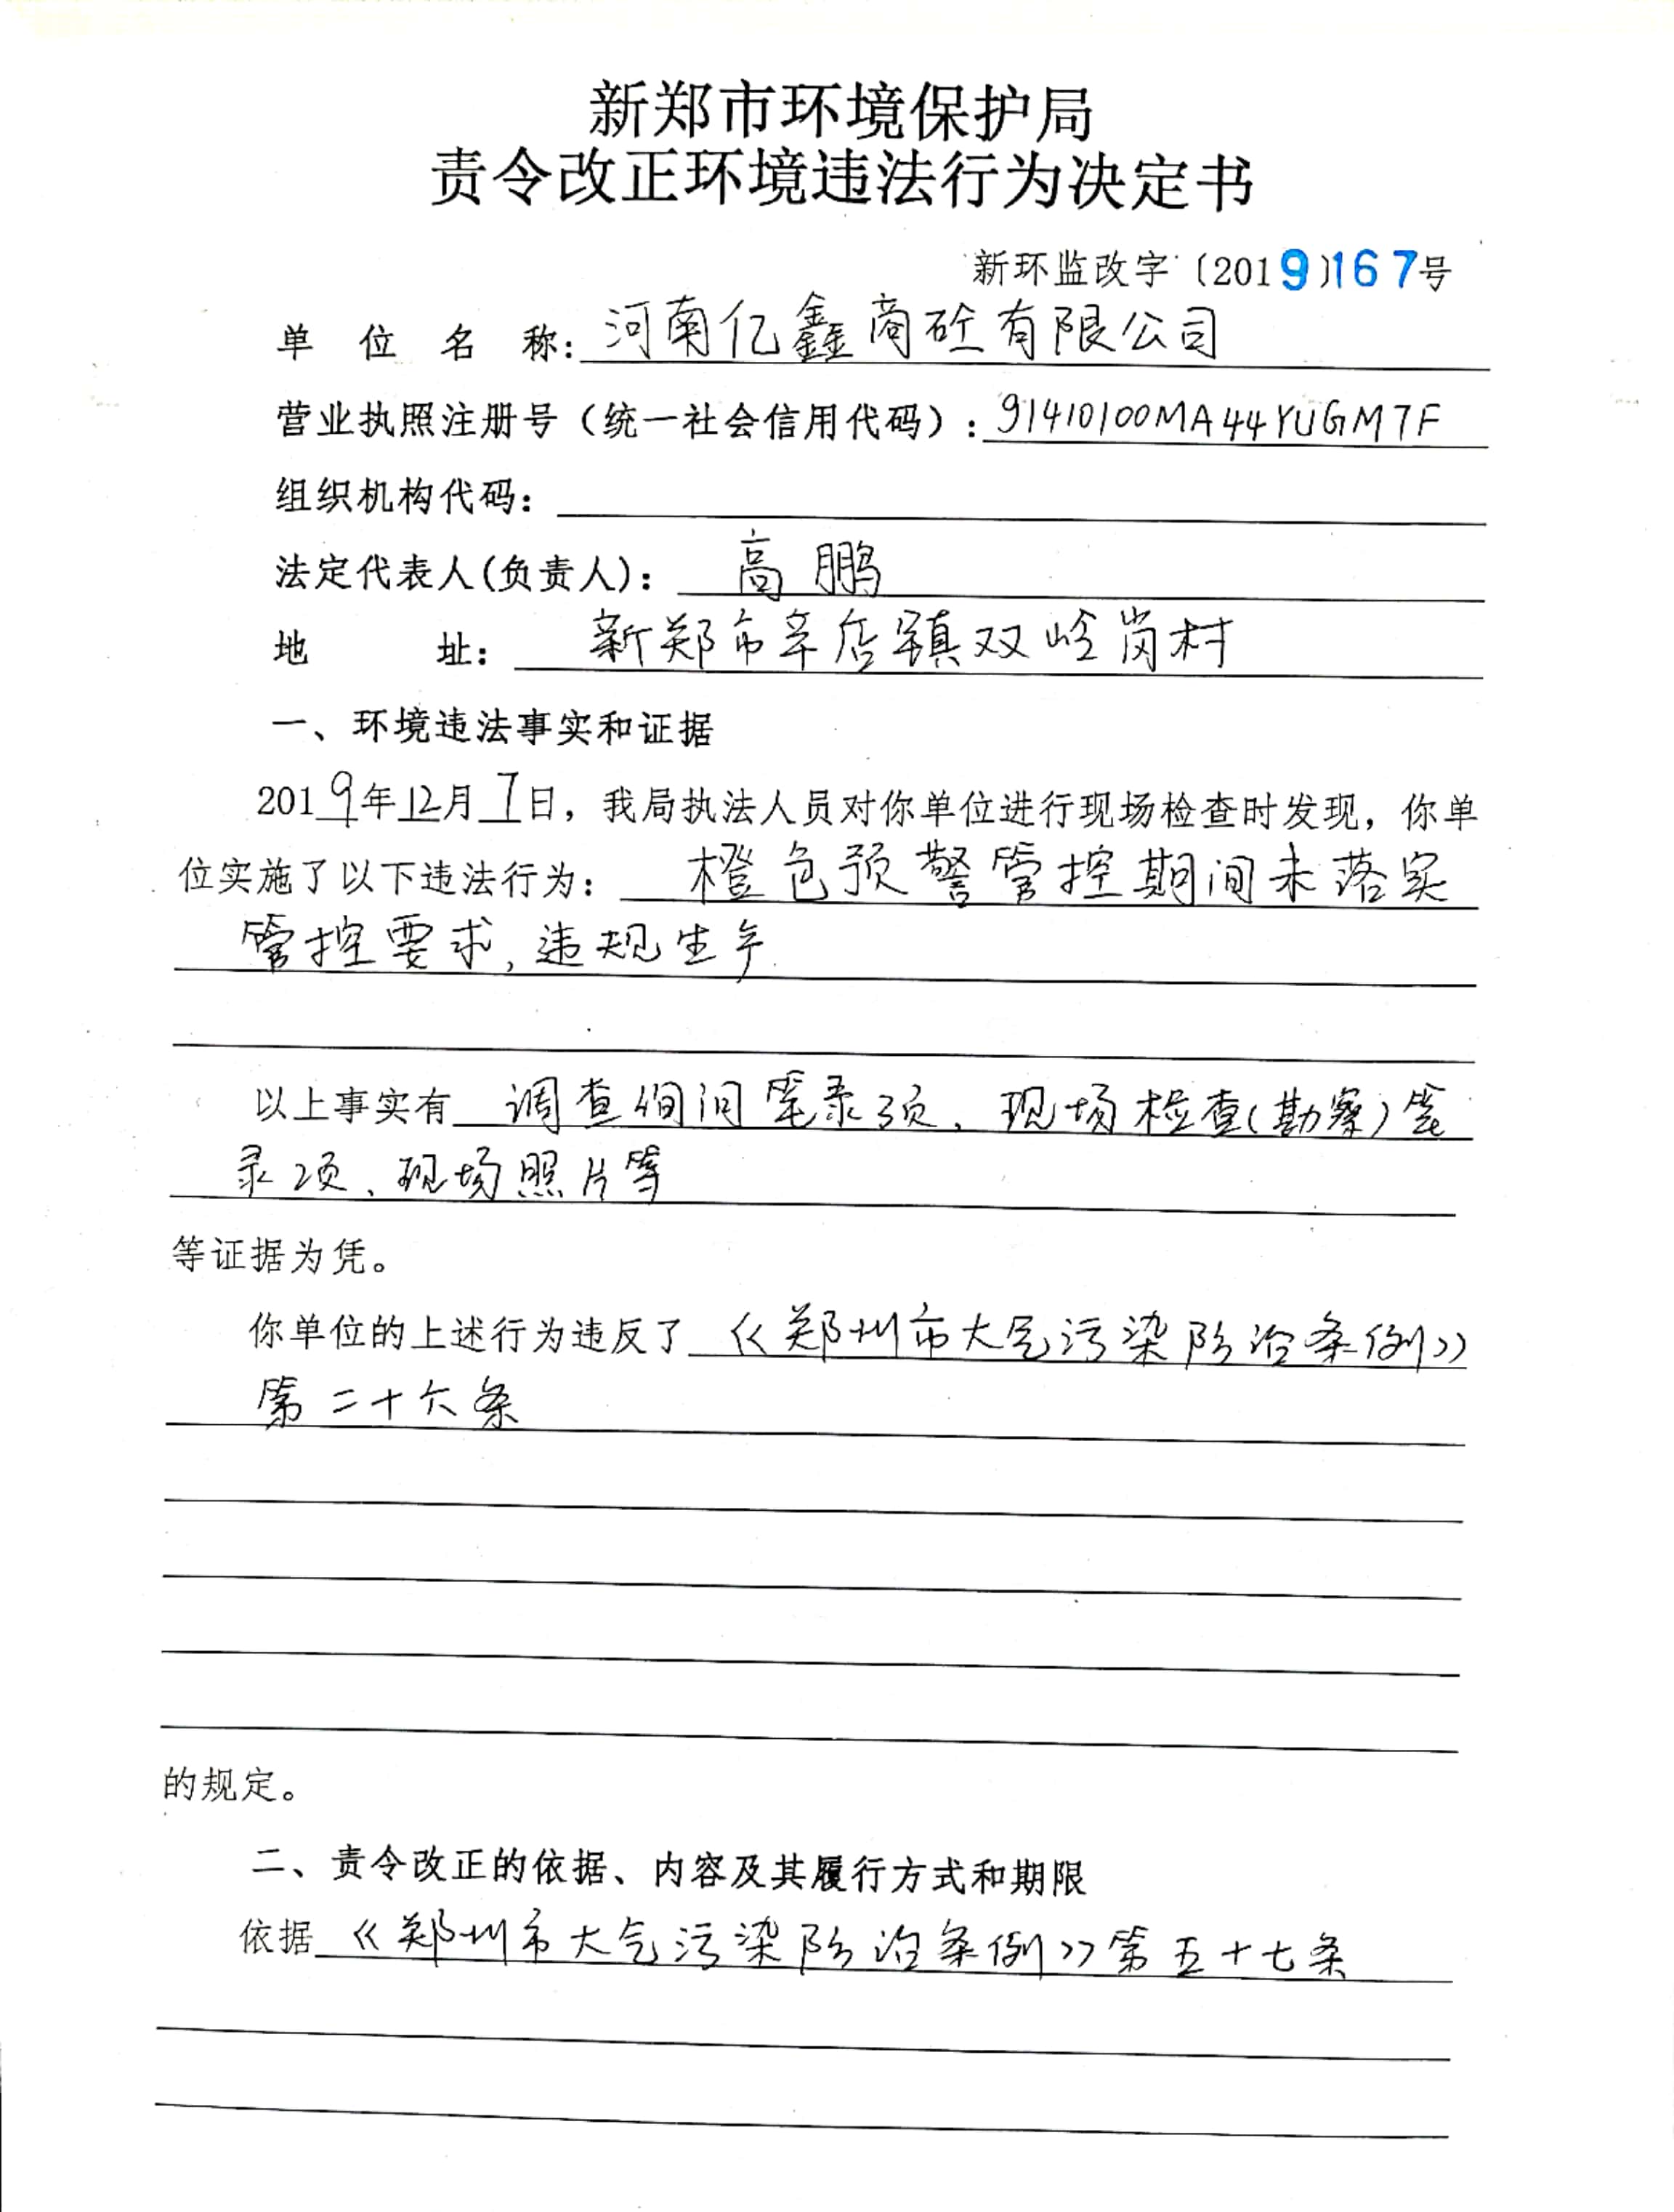 新郑市环境保护局
责令改正环境违法行为决定书
新环监改字〔2019〕167号
单位名称：河南亿鑫商砼有限公司
营业执照注册号（统一社会信用代码）：91410100MA44YUGM7F
组织机构代码：
法定代表人(负责人)：高鹏
地址：新郑市辛店镇双岭岗村
一、环境违法事实和证据
2019年12月7日，我局执法人员对你单位进行现场检查时发现，你单
位实施了以下违法行为：橙色预警管控期间未落实
管控要求，违规生产
以上事实有调查询问笔录3页、现场检查(勘察)笔
录2页、现场照片等
等证据为凭。
你单位的上述行为违反了《郑州市大气污染防治条例》
第二十六条
的规定。
二、责令改正的依据、内容及其履行方式和期限
依据《郑州市大气污染防治条例》第五十七条